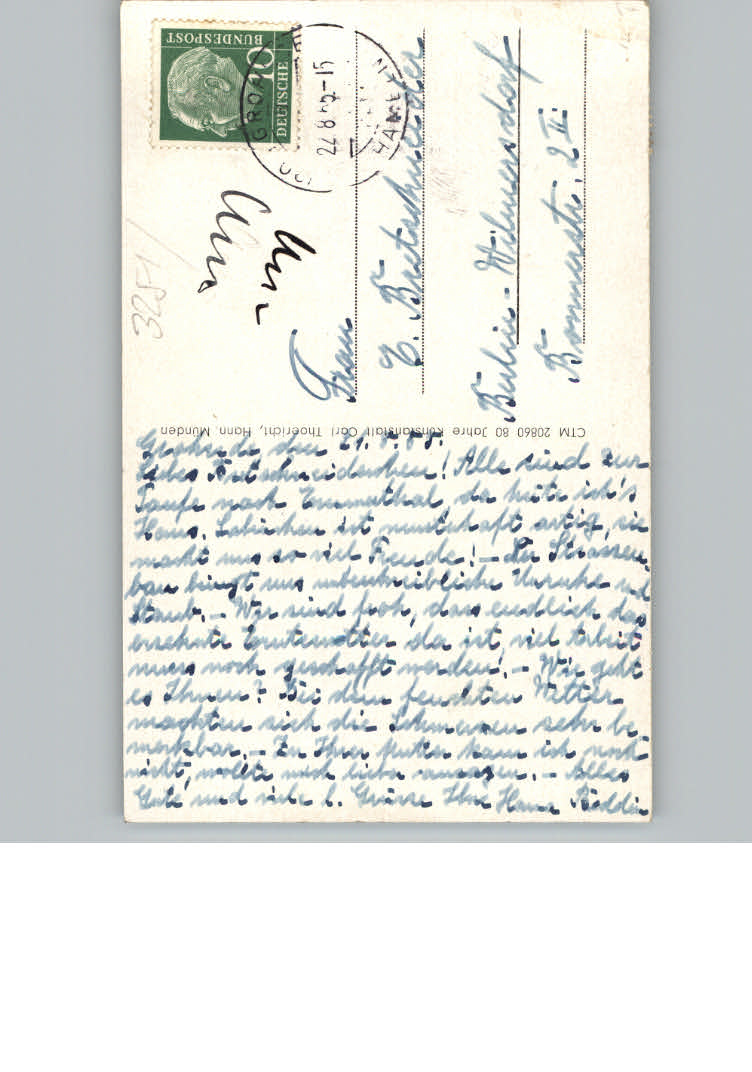 DEUTSCHE
BUNDESPOST
10
HAMELN
3251
Frau
E. Bretschneider
Berlin-Wilmersdorf
Bonnerstr. 2 III
CTM 20860 80 Jahre Kunstanstalt Carl Thoericht, Hann. Münden
Grohnde den 21.
Liebes Bretschneiderchen! Alle sind zur
Taufe nach Emmerthal, da hüte ich's
Haus. ist musterhaft artig, sie
macht uns so viel Freude! – Der Strassen-
bau bringt uns unbeschreibliche Unruhe und
Staub. – Wir sind froh, dass endlich das
ersehnte Erntewetter da ist, viel Arbeit
muss noch geschafft werden! – Wie geht
es Ihnen? Bei dem feuchten Wetter
machten sich die Schmerzen sehr be-
merkbar. – Zu Ihrer Mutter kam ich noch
nicht, wollte mich lieber – Alles
Gute und viele l. Grüsse Ihre Hanna